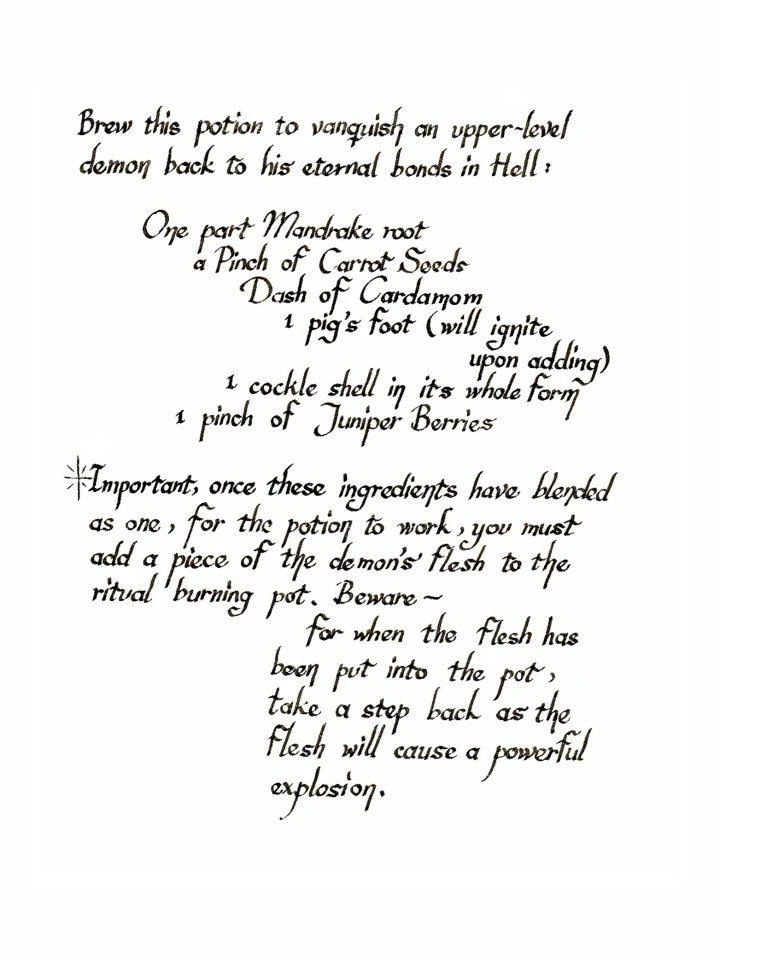 Brew this potion to vanquish an upper-level
demon back to his eternal bonds in Hell:
One part Mandrake root
a Pinch of Carrot Seeds
Dash of Cardamom
1 pig's foot (will ignite
upon adding)
1 cockle shell in it's whole form
1 pinch of Juniper Berries
*Important, once these ingredients have blended
as one, for the potion to work, you must
add a piece of the demon's flesh to the
ritual burning pot. Beware ~
for when the flesh has
been put into the pot,
take a step back as the
flesh will cause a powerful
explosion.